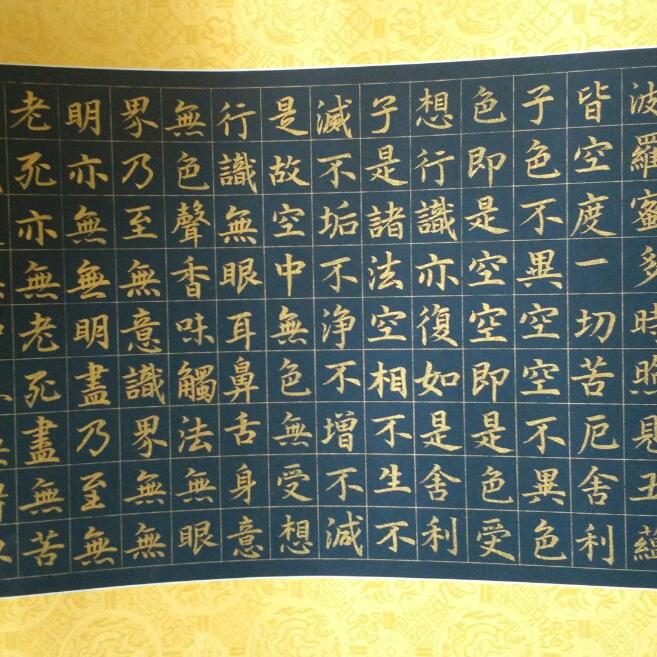 波羅蜜多時照見五蘊
皆空度一切苦厄舍利
子色不異空空不異色
色即是空空即是色受
想行識亦復如是舍利
子是諸法空相不生不
滅不垢不浄不增不減
是故空中無色無受想
行識無眼耳鼻舌身意
無色聲香味觸法無眼
界乃至無意識界無無
明亦無無明盡乃至無
老死亦無老死盡無苦